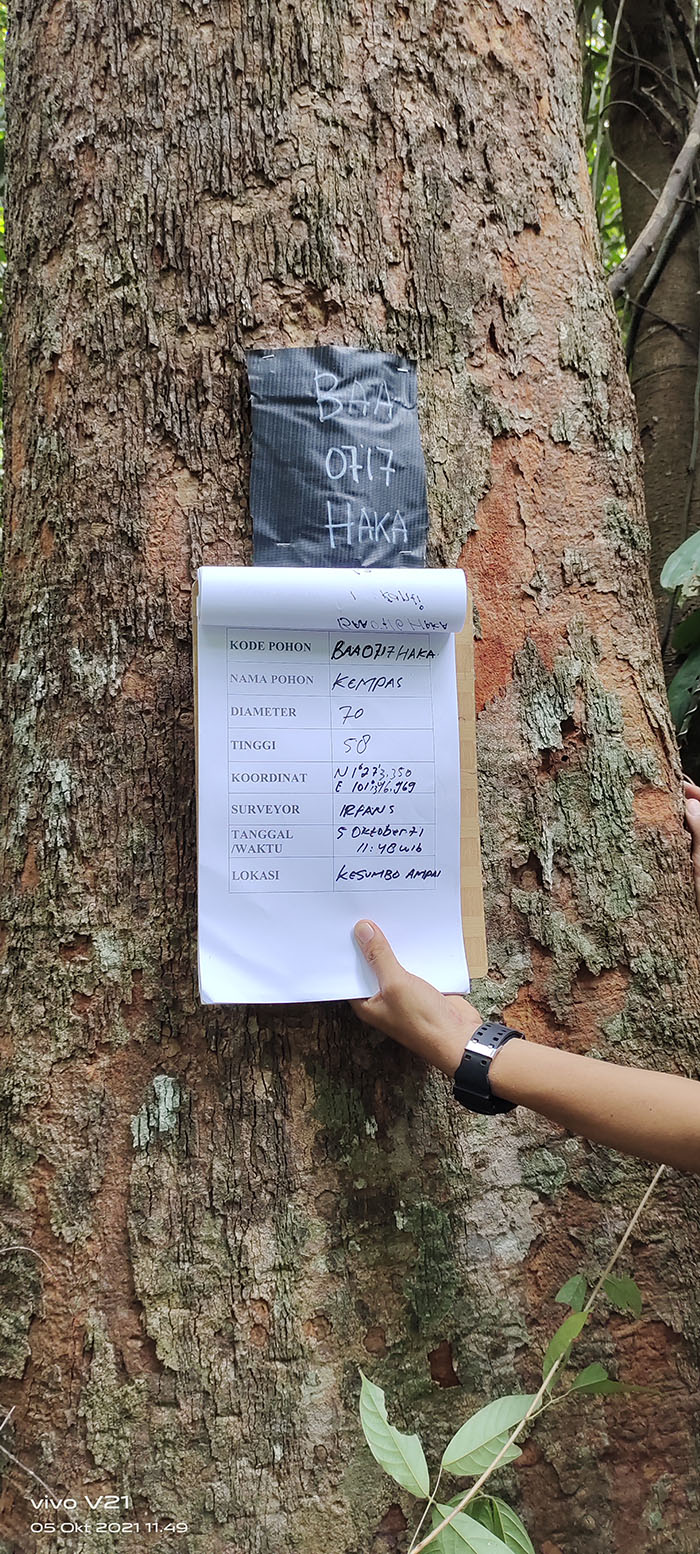 BAA
0717
HAKA
KODE POHON BAA0717HAKA
NAMA POHON KEMPAS
DIAMETER 70
TINGGI 58
KOORDINAT N 1°27'3,350
E 101°
SURVEYOR IRFANS
TANGGAL 5 Oktober 21
/WAKTU 11:48 wib
LOKASI KESUMBO AMPAI
vivo V21
05 Okt 2021 11.49